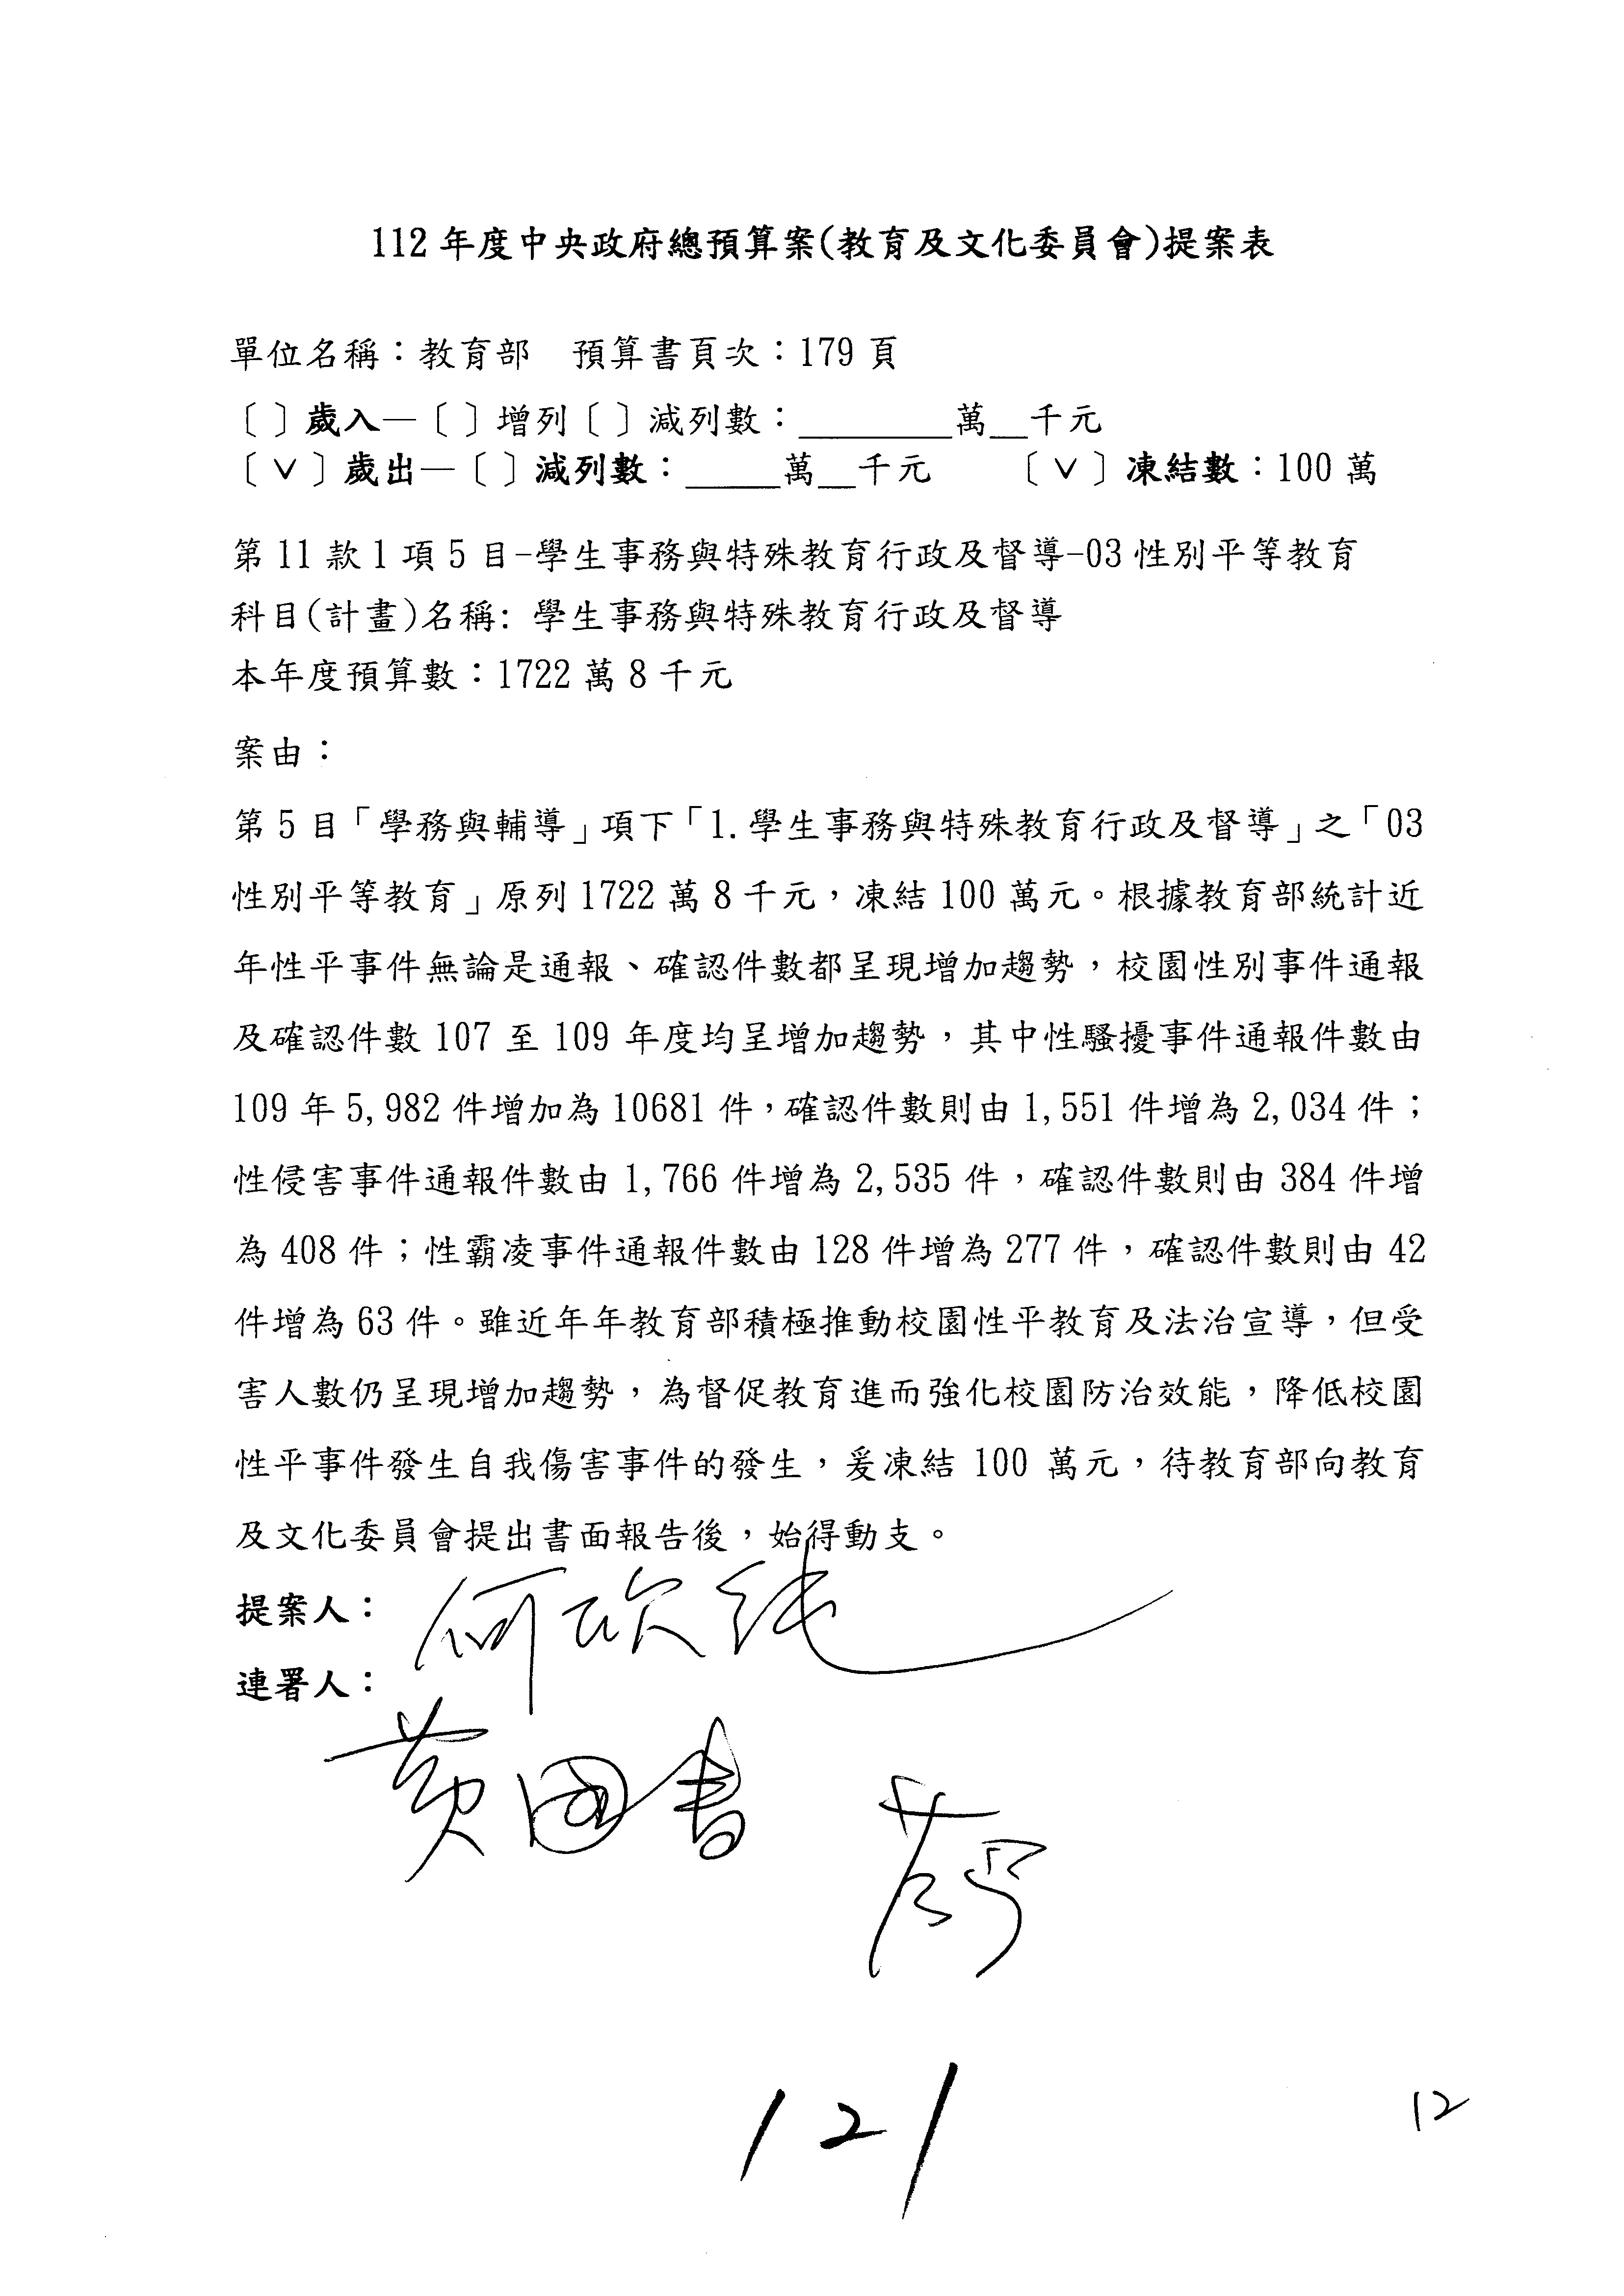 112年度中央政府總預算案(教育及文化委員會)提案表
單位名稱：教育部　預算書頁次：179頁
〔 〕歲入—〔 〕增列〔 〕減列數：________萬__千元
〔ˇ〕歲出—〔 〕減列數：_____萬__千元　〔ˇ〕凍結數：100萬
第11款1項5目-學生事務與特殊教育行政及督導-03性別平等教育
科目(計畫)名稱: 學生事務與特殊教育行政及督導
本年度預算數：1722萬8千元
案由：
第5目「學務與輔導」項下「1.學生事務與特殊教育行政及督導」之「03
性別平等教育」原列1722萬8千元，凍結100萬元。根據教育部統計近
年性平事件無論是通報、確認件數都呈現增加趨勢，校園性別事件通報
及確認件數107至109年度均呈增加趨勢，其中性騷擾事件通報件數由
109年5,982件增加為10681件，確認件數則由1,551件增為2,034件；
性侵害事件通報件數由1,766件增為2,535件，確認件數則由384件增
為408件；性霸凌事件通報件數由128件增為277件，確認件數則由42
件增為63件。雖近年年教育部積極推動校園性平教育及法治宣導，但受
害人數仍呈現增加趨勢，為督促教育進而強化校園防治效能，降低校園
性平事件發生自我傷害事件的發生，爰凍結100萬元，待教育部向教育
及文化委員會提出書面報告後，始得動支。
提案人：何欣純
連署人：
黃國書
121
12